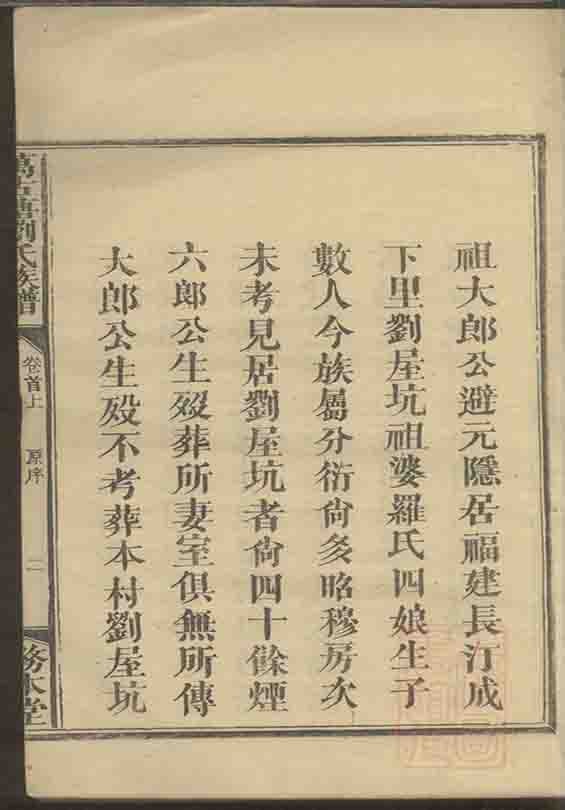 祖大郎公避元隱居福建長汀成
下里劉屋坑祖婆羅氏四娘生子
數人今族屬分衍尙多昭穆房次
未考見居劉屋坑者尙四十餘煙
六郎公生歿葬所妻室俱無所傳
大郎公生歿不考葬本村劉屋坑
劉氏族譜
卷首上
原序
二
務本堂